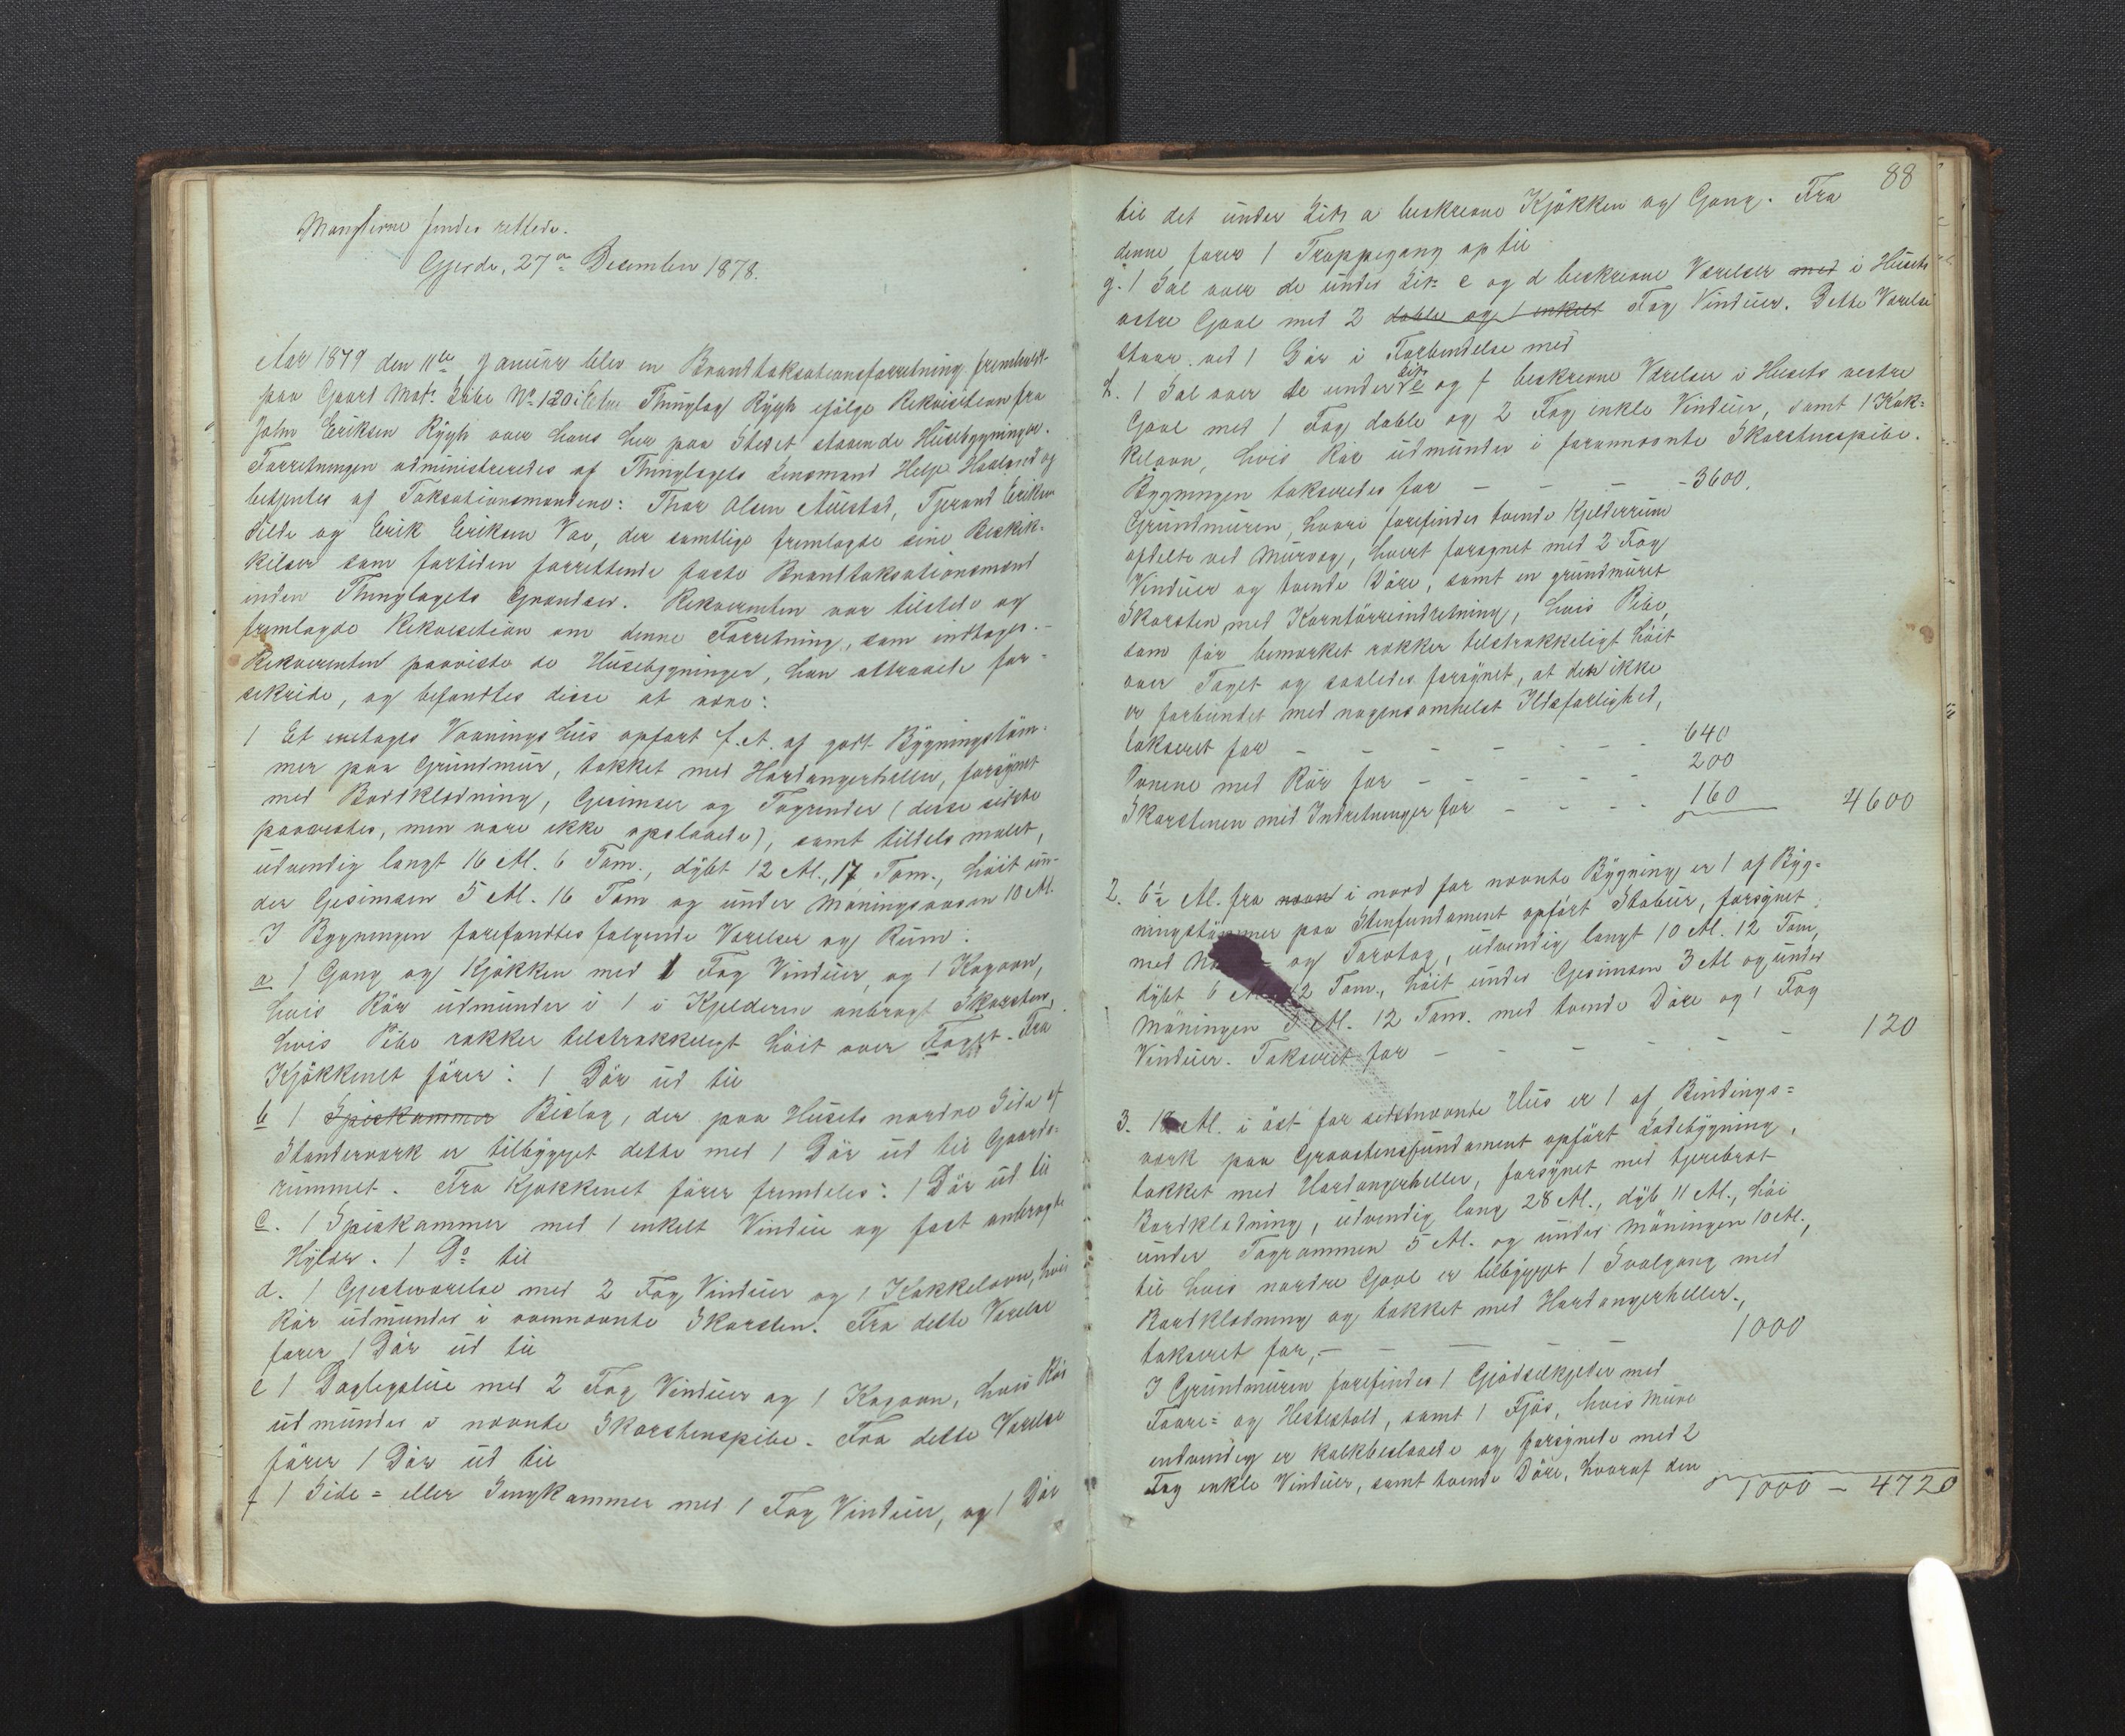 Manglerne findes rettede.
Gjerde, 27de December 1878.
Aar 1879 den 11te Januar blev en Brandtaksationsforretning fremholdt
paa Gaard Matr. Løbe No. 120 i Etne Thinglag Rygh ifølge Rekvisition fra
John Eriksen Rygh over hans her paa Stedet staaende Husebygninger.
Forretningen administreredes af Thinglagets Lensmand Helje Haaland og
betjentes af Taksationsmændene: Thor Olsen Austad, Tjerand Eriksen
Silde og Erik Eriksen Vae, der samtlige fremlagde sine Beskik-
kelser som fortiden forrettende faste Brandtaksationsmænd
inden Thinglagets Grændser. Rekvirenten var tilstede og
fremlagde Rekvisition om denne Forretning, som indtages.-
Rekvirenten paaviste de Husebygninger, han attraaede for-
sikrede, og befandtes disse at være:
1 Et eetages Vaaningshus opført f. A. af godt Bygningstøm-
mer paa Grundmur, takket med Hardangerheller, forsynet
med Bordklædning, Gesimser og Tagrender (disse sidste
paavistes, men vare ikke opslaaede), samt tildels malet,
udvendig langt 16 Al. 6 Tom., dybt 12 Al., 17 Tom., høit un-
der Gesimsen 5 Al. 16 Tom og under Møningsaasen 10 Al.
I Bygningen forefandtes følgende Værelser og Rum:
a 1 Gang og Kjøkken med 1 Fag Vinduer, og 1 Kogovn,
hvis Rør udmunder i 1 i Kjelderen anbragt Skorsten,
hvis Pibe rækker tilstrækkeligt høit over Taget. Fra
Kjøkkenet fører: 1 Dør ud til
b 1 Spiskammer Bislag, der paa Husets nordre Side af
Standerværk er tilbygget dette med 1 Dør ud til Gaards-
rummet. Fra Kjøkkenet fører fremdeles: 1 Dør ud til
c. 1 Spiskammer med 1 enkelt Vindue og fast anbragte
Hylder. 1 Do til
d. 1 Gjesteværelse med 2 Fag Vinduer og 1 Kakkelovn, hvis
Rør udmunder i ovennævnte Skorsten. Fra dette Værelse
fører 1 Dør ud til
e 1 Dagligstue med 2 Fag Vinduer og 1 Kogovn, hvis Rør
udmunder i nævnte Skorstenspibe. Fra dette Værelse
fører 1 Dør ud til
f 1 Side= eller Sengkammer med 1 Fag Vinduer, og 1 Dør
88
til det under Litr a beskrevne Kjøkken og Gang. Fra
denne fører 1 Trappegang op til
g. 1 Sal over de under Litr c og d beskrevne Værelser med i Husets
østre Gavl med 2 doble og 1 enkelt Fag Vinduer. Dette Værelse
staar ved 1 Dør i Forbindelse med
h. 1 Sal over de under Litr e og f beskrevne Værelser i Husets vestre
Gavl med 1 Fag doble og 2 Fag enkle Vinduer, samt 1 Kak=
kelovn, hvis Rør udmunder i forannævnte Skorstenspibe.
Bygningen takseredes for - - - - 3600.
Grundmuren, hvori forefindes tvende Kjelderrum
afdelte ved Murvæg, hvert forsynet med 2 Fag
Vinduer og tvende Døre, samt en grundmuret
Skorsten med Korntørreindretning, hvis Pibe,
som før bemærket rækker tilstrækkeligt høit
over Taget og saaledes forsynet, at den ikke
er forbundet med nogensomhelst Ildsfarlighed,
takseret for - - - - - - - 640
Ovnene med Rør for - - - - - 200
Skorstenen med Indretninger for - - - - 160 4600
2. 6½ Al. fra i nord for nævnte Bygning er 1 af Byg=
ningstømmer paa Stenfundament opført Stabur, forsynet
med og Torvtag, udvendig langt 10 Al. 12 Tom,
dybt 6 Al. 12 Tom., høit under Gesimsen 3 Al og under
Møningen 5 Al. 12 Tom. med tvende Døre og 1 Fag
Vinduer. Takseret for - - - - - - 120
3. Al. i øst for sidstnævnte Hus er 1 af Bindings=
værk paa Graastensfundament opført Ladebygning,
takket med Hardangerheller, forsynet med tjærebræt
Bordklædning, udvendig lang 28 Al., dyb 11 Al., høi
under Tagrammen 5 Al. og under Møningen 10 Al.,
til hvis nordre Gavl er tilbygget 1 Svalgang med
Bordklædning og takket med Hardangerheller.,
takseret for, - - - 1000
I Grundmuren forefindes 1 Gjødselkjelder med
Faare= og Hestestald, samt 1 Fjøs, hvis Mure
indvendig er kalkbeslaaede og forsynede med 2
Fag enkle Vinduer, samt tvende Døre, hvoraf den
1000 - 4720